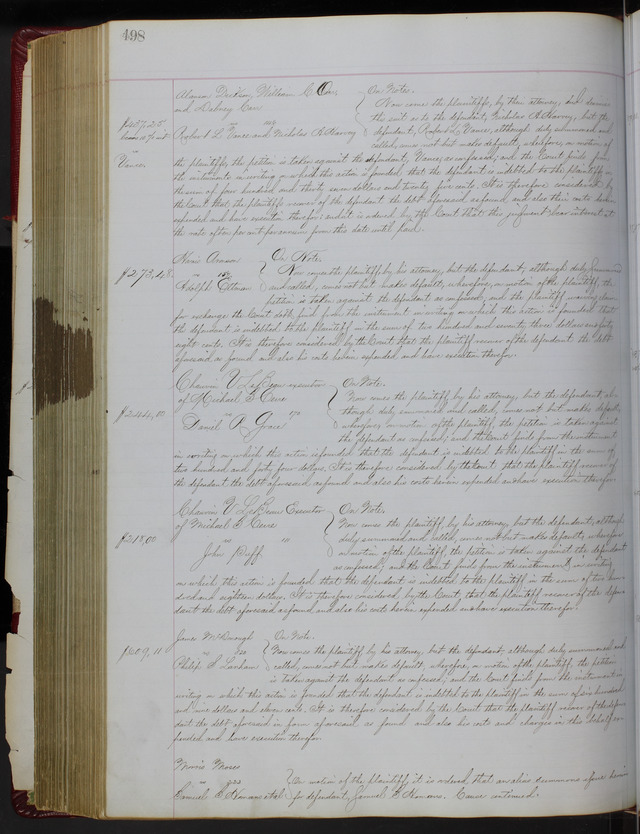 498
William C. Orr,
On Note.
and Dabney Carr
Now come the plaintiffs, by their attorney, and dismiss
$437,25
the suit as to the defendant, Nicholas H Harvey, but the
vs
Robert L Vance and Nicholas H Harvey
defendant, Robert L Vance, although duly summoned and
called, comes not but makes default, wherefore, on motion of
Vance
the plaintiffs, the petition is taken against the defendant, Vance, as confessed; and the Court finds from
the instrument in writing on which this action is founded, that the defendant is indebted to the plaintiffs in
the sum of four hundred and thirty seven dollars and twenty five cents. It is therefore considered by
the Court that the plaintiffs recover of the defendant the debt aforesaid as found, and also their costs herein
expended and have execution therefor: and it is ordered by the Court that this judgment bear interest at
the rate of ten per cent per annum from this date until paid.
On Note.
Now comes the plaintiff by his attorney, but the defendant, although duly summoned
$273,48
vs
and called, comes not but makes default, wherefore, on motion of the plaintiff, the
petition is taken against the defendant as confessed, and the plaintiff
for exchange the Court doth find from the instrument in writing on which this action is founded that
the defendant is indebted to the plaintiff in the sum of two hundred and seventy three dollars and forty
eight cents. It is therefore considered by the Court that the plaintiff recover of the defendant the debt
aforesaid as found and also his costs herein expended, and have execution therefor.
Chauvin V. LeBeau executor
On Note.
of Michael S Cerre
Now comes the plaintiff by his attorney, but the defendant, al-
though duly summoned and called, comes not but makes default,
$244,00
vs
Daniel A Grace
wherefore, on motion of the plaintiff, the petition is taken against
the defendant as confessed; and the Court finds from the instrument
in writing on which this action is founded, that the defendant is indebted to the plaintiff in the sum of
two hundred and forty four dollars. It is therefore considered by the Court that the plaintiff recover of
the defendant the debt aforesaid as found and also his costs herein expended and have execution therefor
Chauvin V. LeBeau Executor
On Note.
of Michael S Cerre
Now comes the plaintiff, by his attorney, but the defendant, although
$218,00
duly summoned and called, comes not but makes default, wherefore,
John Ruff
on motion of the plaintiff, the petition is taken against the defendant
as confessed; and the Court finds from the instrument in writing
on which this action is founded, that the defendant is indebted to the plaintiff in the sum of two hun-
dred and eighteen dollars. It is therefore considered by the Court, that the plaintiff recover of the defen-
dant the debt aforesaid as found and also his costs herein expended and have execution therefor.
James McDonough
On Note.
$609,11
Now comes the plaintiff by his attorney, but the defendant although duly summoned and
Philip S Lanham
called, comes not but makes default, wherefore, on motion of the plaintiff, the petition
is taken against the defendant as confessed, and the Court finds from the instrument in
writing on which this action is founded that the defendant is indebted to the plaintiff in the sum of six hundred
and nine dollars and eleven cents. It is therefore considered by the Court that the plaintiff recover of the defen-
dant the debt aforesaid in form aforesaid as found and also his costs and charges in this behalf ex-
pended and have execution therefor.
Morris Moses
On motion of the plaintiff, it is ordered that an alias summons issue herein
for defendant, Samuel Cause continued.